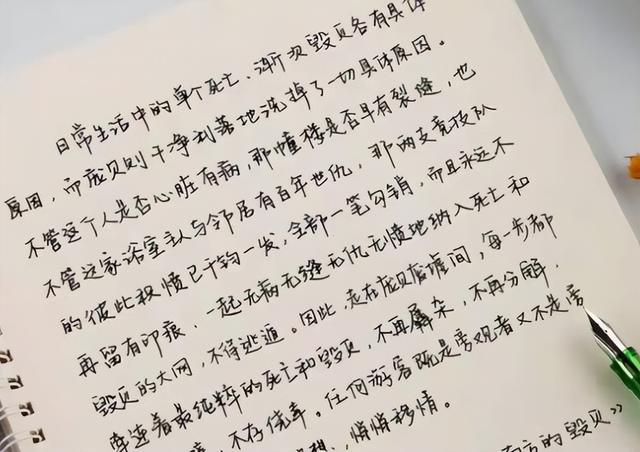 日常生活中的单个死亡、渐次毁灭各有具体
原因，而庞贝则干净利落地洗掉了一切具体原因。
不管这个人是否心脏有病，那幢楼是否早有裂缝，也
不管这家浴室主人与邻居有百年世仇，那两支竞技队
的彼此积愤已千钧一发，全部一笔勾销，而且永远不
再留有印痕，一起无病无缝无仇无愤地纳入死亡和
毁灭的大网，不得逃遁。因此，走在庞贝废墟间，每一步都
牵连着最纯粹的死亡和毁灭，不再羼杂，不再分解，
不存侥幸。任何游客既是旁观者又不是旁
，悄悄移情。
南方的毁灭》